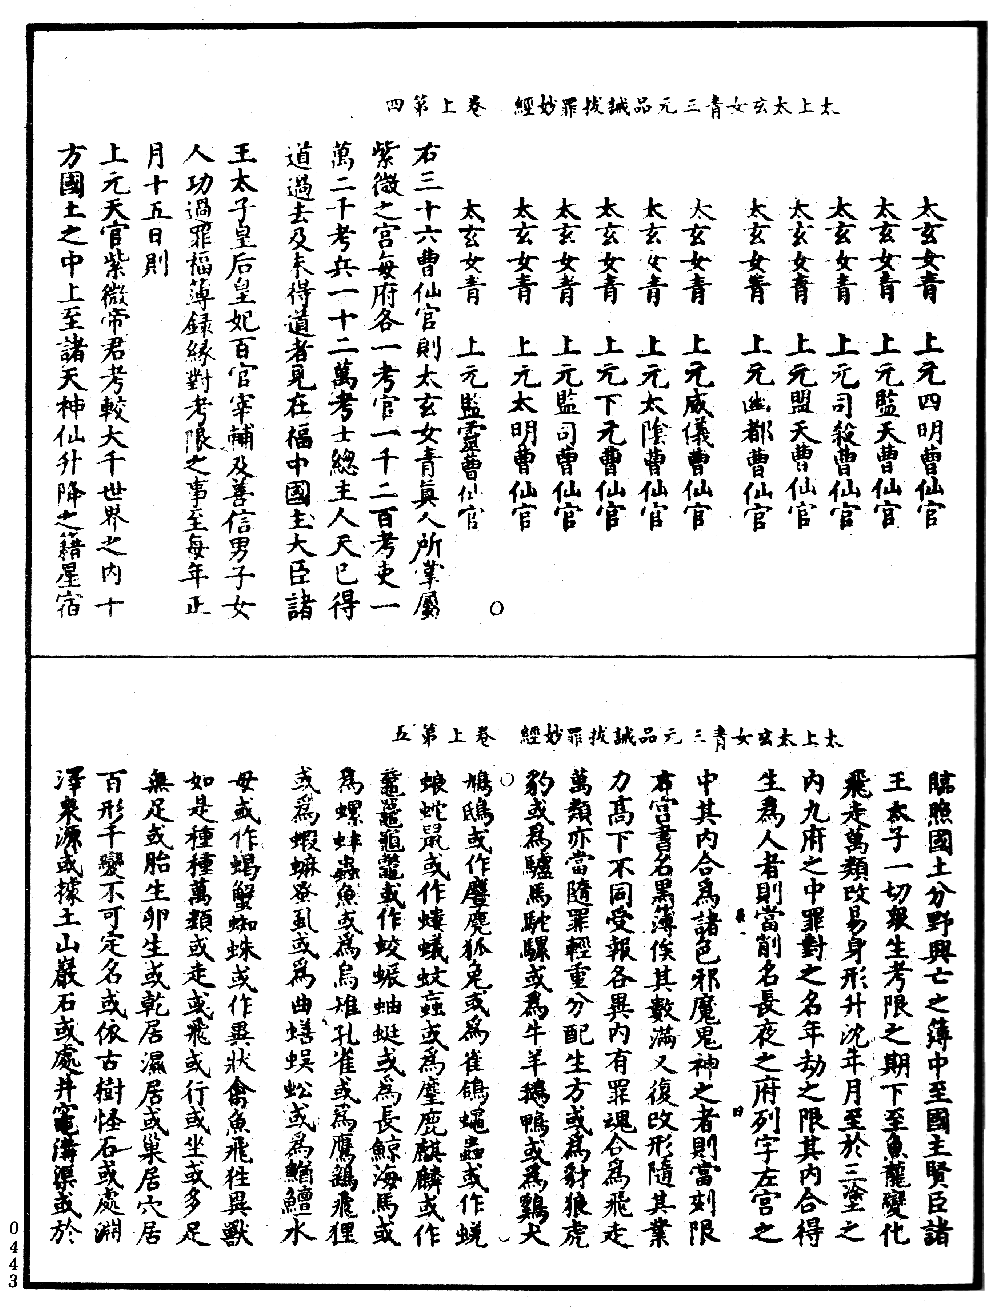 太上太玄女青三元品誡拔罪妙經　卷上第四
太玄女青　上元四明曹仙官
太玄女青　上元監天曹仙官
太玄女青　上元司殺曹仙官
太玄女青　上元盟天曹仙官
太玄女青　上元幽都曹仙官
太玄女青　上元威儀曹仙官
太玄女青　上元太陰曹仙官
太玄女青　上元下元曹仙官
太玄女青　上元監司曹仙官
太玄女青　上元太明曹仙官
太玄女青　上元監靈曹仙官
右三十六曹仙官則太玄女青真人所掌屬
紫微之宮每府各一考官一千二百考吏一
萬二千考兵一十二萬考士總主人天已得
道過去及未得道者見在福中國主大臣諸
王太子皇后皇妃百官宰輔及善信男子女
人功過罪福簿録緣對考限之事至每年正
月十五日則
上元天官紫微帝君考較大千世界之內十
方國土之中上至諸天神仙升降之籍星宿
太上太玄女青三元品誡拔罪妙經　卷上第五
臨照國土分野興亡之簿中至國主賢臣諸
王太子一切衆生考限之期下至魚龍變化
飛走萬類改易身形升沈年月至於三塗之
內九府之中罪對之名年劫之限其內合得
生爲人者則當削名長夜之府列字左宮之
中其內合爲諸色邪魔鬼神之者則當刻限
右宮書名黑簿俟其數滿又復改形隨其業
力高下不同受報各異內有罪魂合爲飛走
萬類亦當隨罪輕重分配生方或爲豺狼虎
豹或爲驢馬駝騾或爲牛羊鵝鴨或爲雞犬
鳩鴟或作麞麂狐兔或爲雀鴿蠅蟲或作蜣
蜋蛇鼠或作螻蟻蚊蝱或爲麈鹿麒麟或作
黿鼉龜鼈或作蛟蜃蚰蜒或爲長鯨海馬或
爲螺蚌蟲魚或爲烏雉孔雀或爲鷹鷂飛狸
或爲蝦蟆蚤虱或爲曲蟮蜈蚣或爲鰌鱣水
母或作蝎蟹蜘蛛或作異狀禽魚飛牲異獸
如是種種萬類或走或飛或行或坐或多足
無足或胎生卵生或乾居濕居或巢居穴居
百形千變不可定名或依古樹怪石或處淵
澤泉源或據土山巖石或處井竈溝渠或於
0443